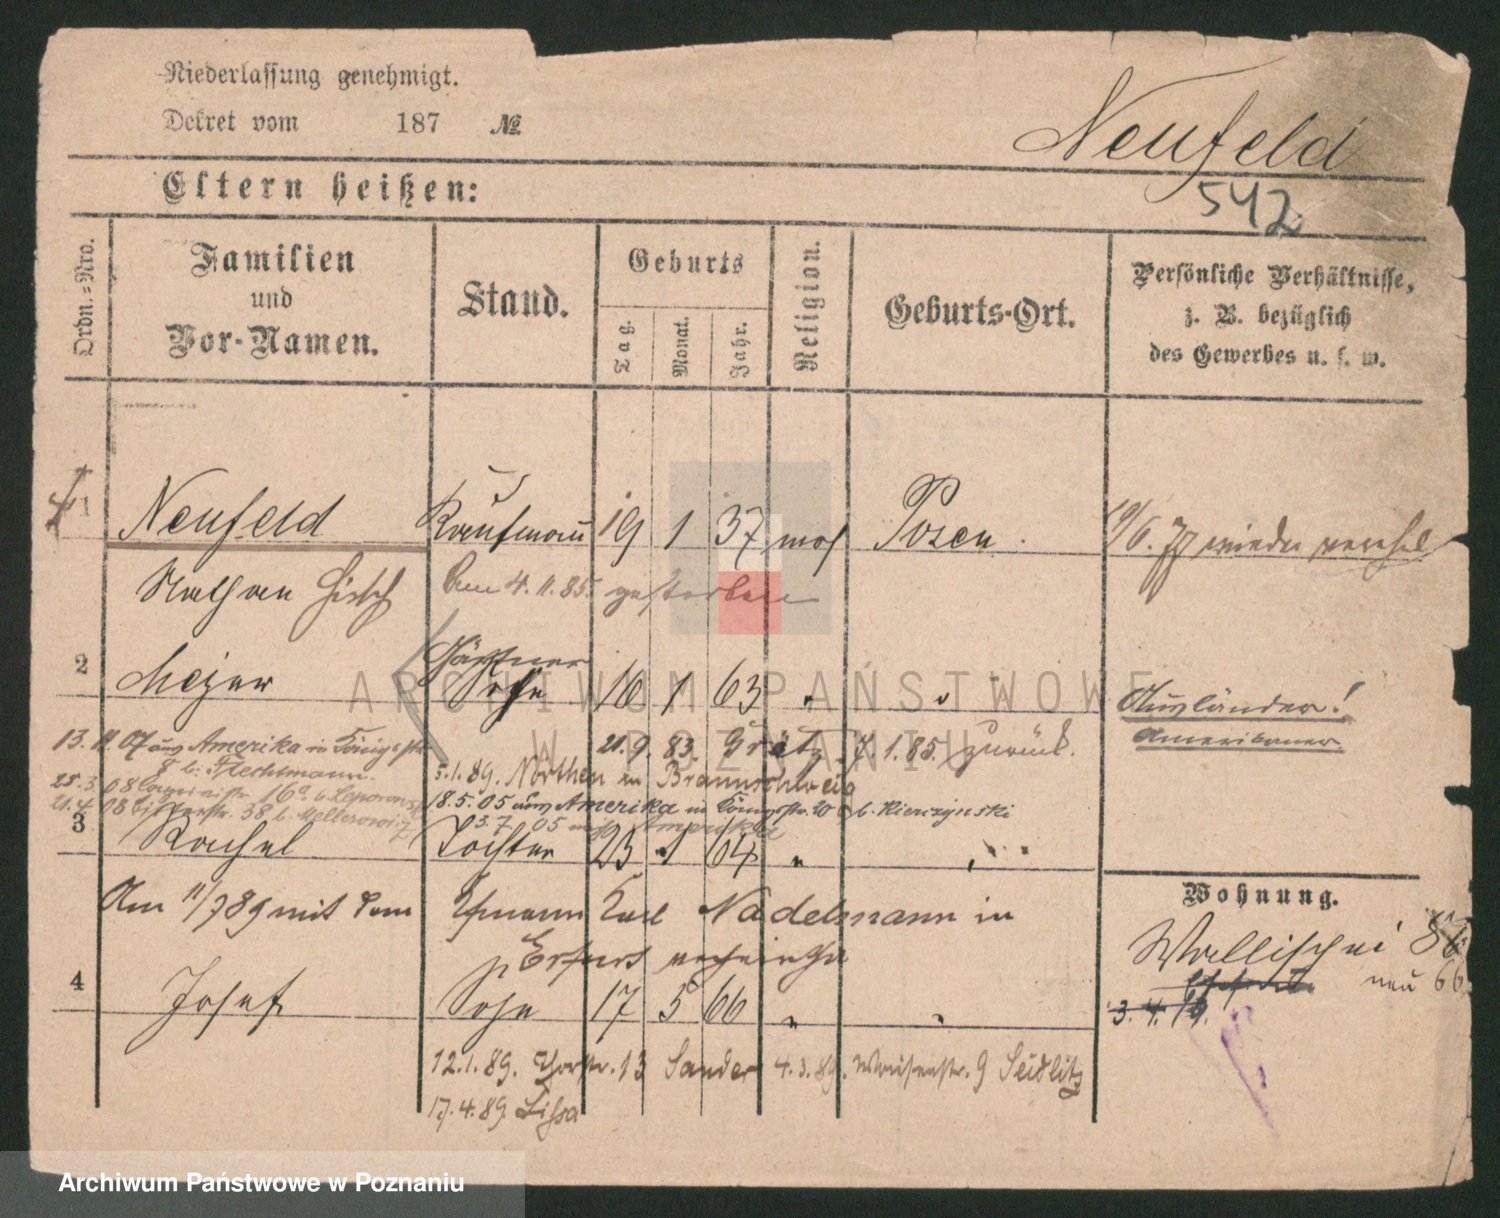 Niederlassung genehmigt.
Dekret vom 187 №
Neufeld
542
Eltern heißen:
Ordn.-Nro.
Familien
und
Vor-Namen.
Stand.
Geburts
Tag.
Monat.
Jahr.
Religion.
Geburts-Ort.
Persönliche Verhältnisse,
z. B. bezüglich
des Gewerbes u. s. w.
1 Neufeld Kaufmann 19 1 37 mos Posen.
19/6. 77 wieder
Nathan Hirsch
Am 4.11.85. gestorben
Gärtner
2 Meyer Sohn 16 1 63 " "
Ausländer!
Amerikaner.
21.9.83. Grätz 7.1.85. zurück.
13. 11. 07 aus Amerika in Königstr
8 b. Flechtmann.
5.1.89. Nörthen in Braunschweig
25.3.08 16a b.
18.5.05 aus Amerika in Königsstr. 20 b. Hierzynski
21.4.08 38, b.
3.7.05 nach Amerika
3 Rachel Tochter 23 1 64 "
Wohnung.
Am 11/7 89 mit dem Ehmann Karl Nadelmann in
Erfurt
Wallischei 86
neu 66
4 Josef Sohn 17 5 66 " "
3. 4. 19.
12.1.89. 13 Sander 4.3.89. Waisenstr. 9 Seidlitz
17.4.89. Lissa
ARCHIWUM PAŃSTWOWE
W POZNANIU
Archiwum Państwowe w Poznaniu